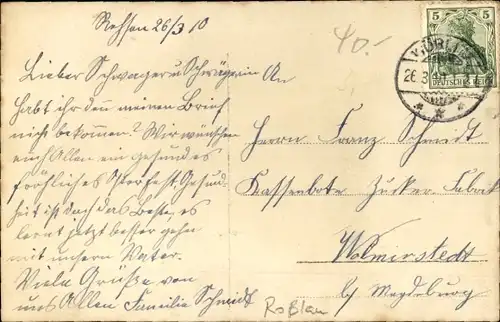 Rehsen 26/3 10
40.-
Lieber Schwager u Schwägerin An
habt ihr den meinen Brief
nich bekommen? Wir wünschen
euch Allen ein gesundes
fröhliches Osterfest. Gesund-
heit ist doch das Beste, es
lernt jetzt besser gehn
mit unsern Vater.
Viele Grüße von
uns Allen Familie Schmidt
Roßlau
5 5
DEUTSCHES REICH
WÖRLITZ
26.3.10
Herrn Franz Schmidt
Kassenbote Zucker Fabrik
Wolmirstedt
b/ Magdeburg